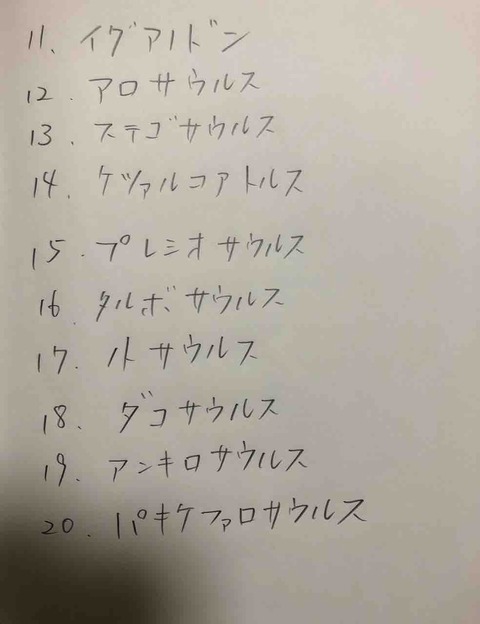 11. イグアノドン
12. アロサウルス
13. ステゴサウルス
14. ケツァルコアトルス
15. プレシオサウルス
16. タルボサウルス
17. ノトサウルス
18. ダコサウルス
19. アンキロサウルス
20. パキケファロサウルス